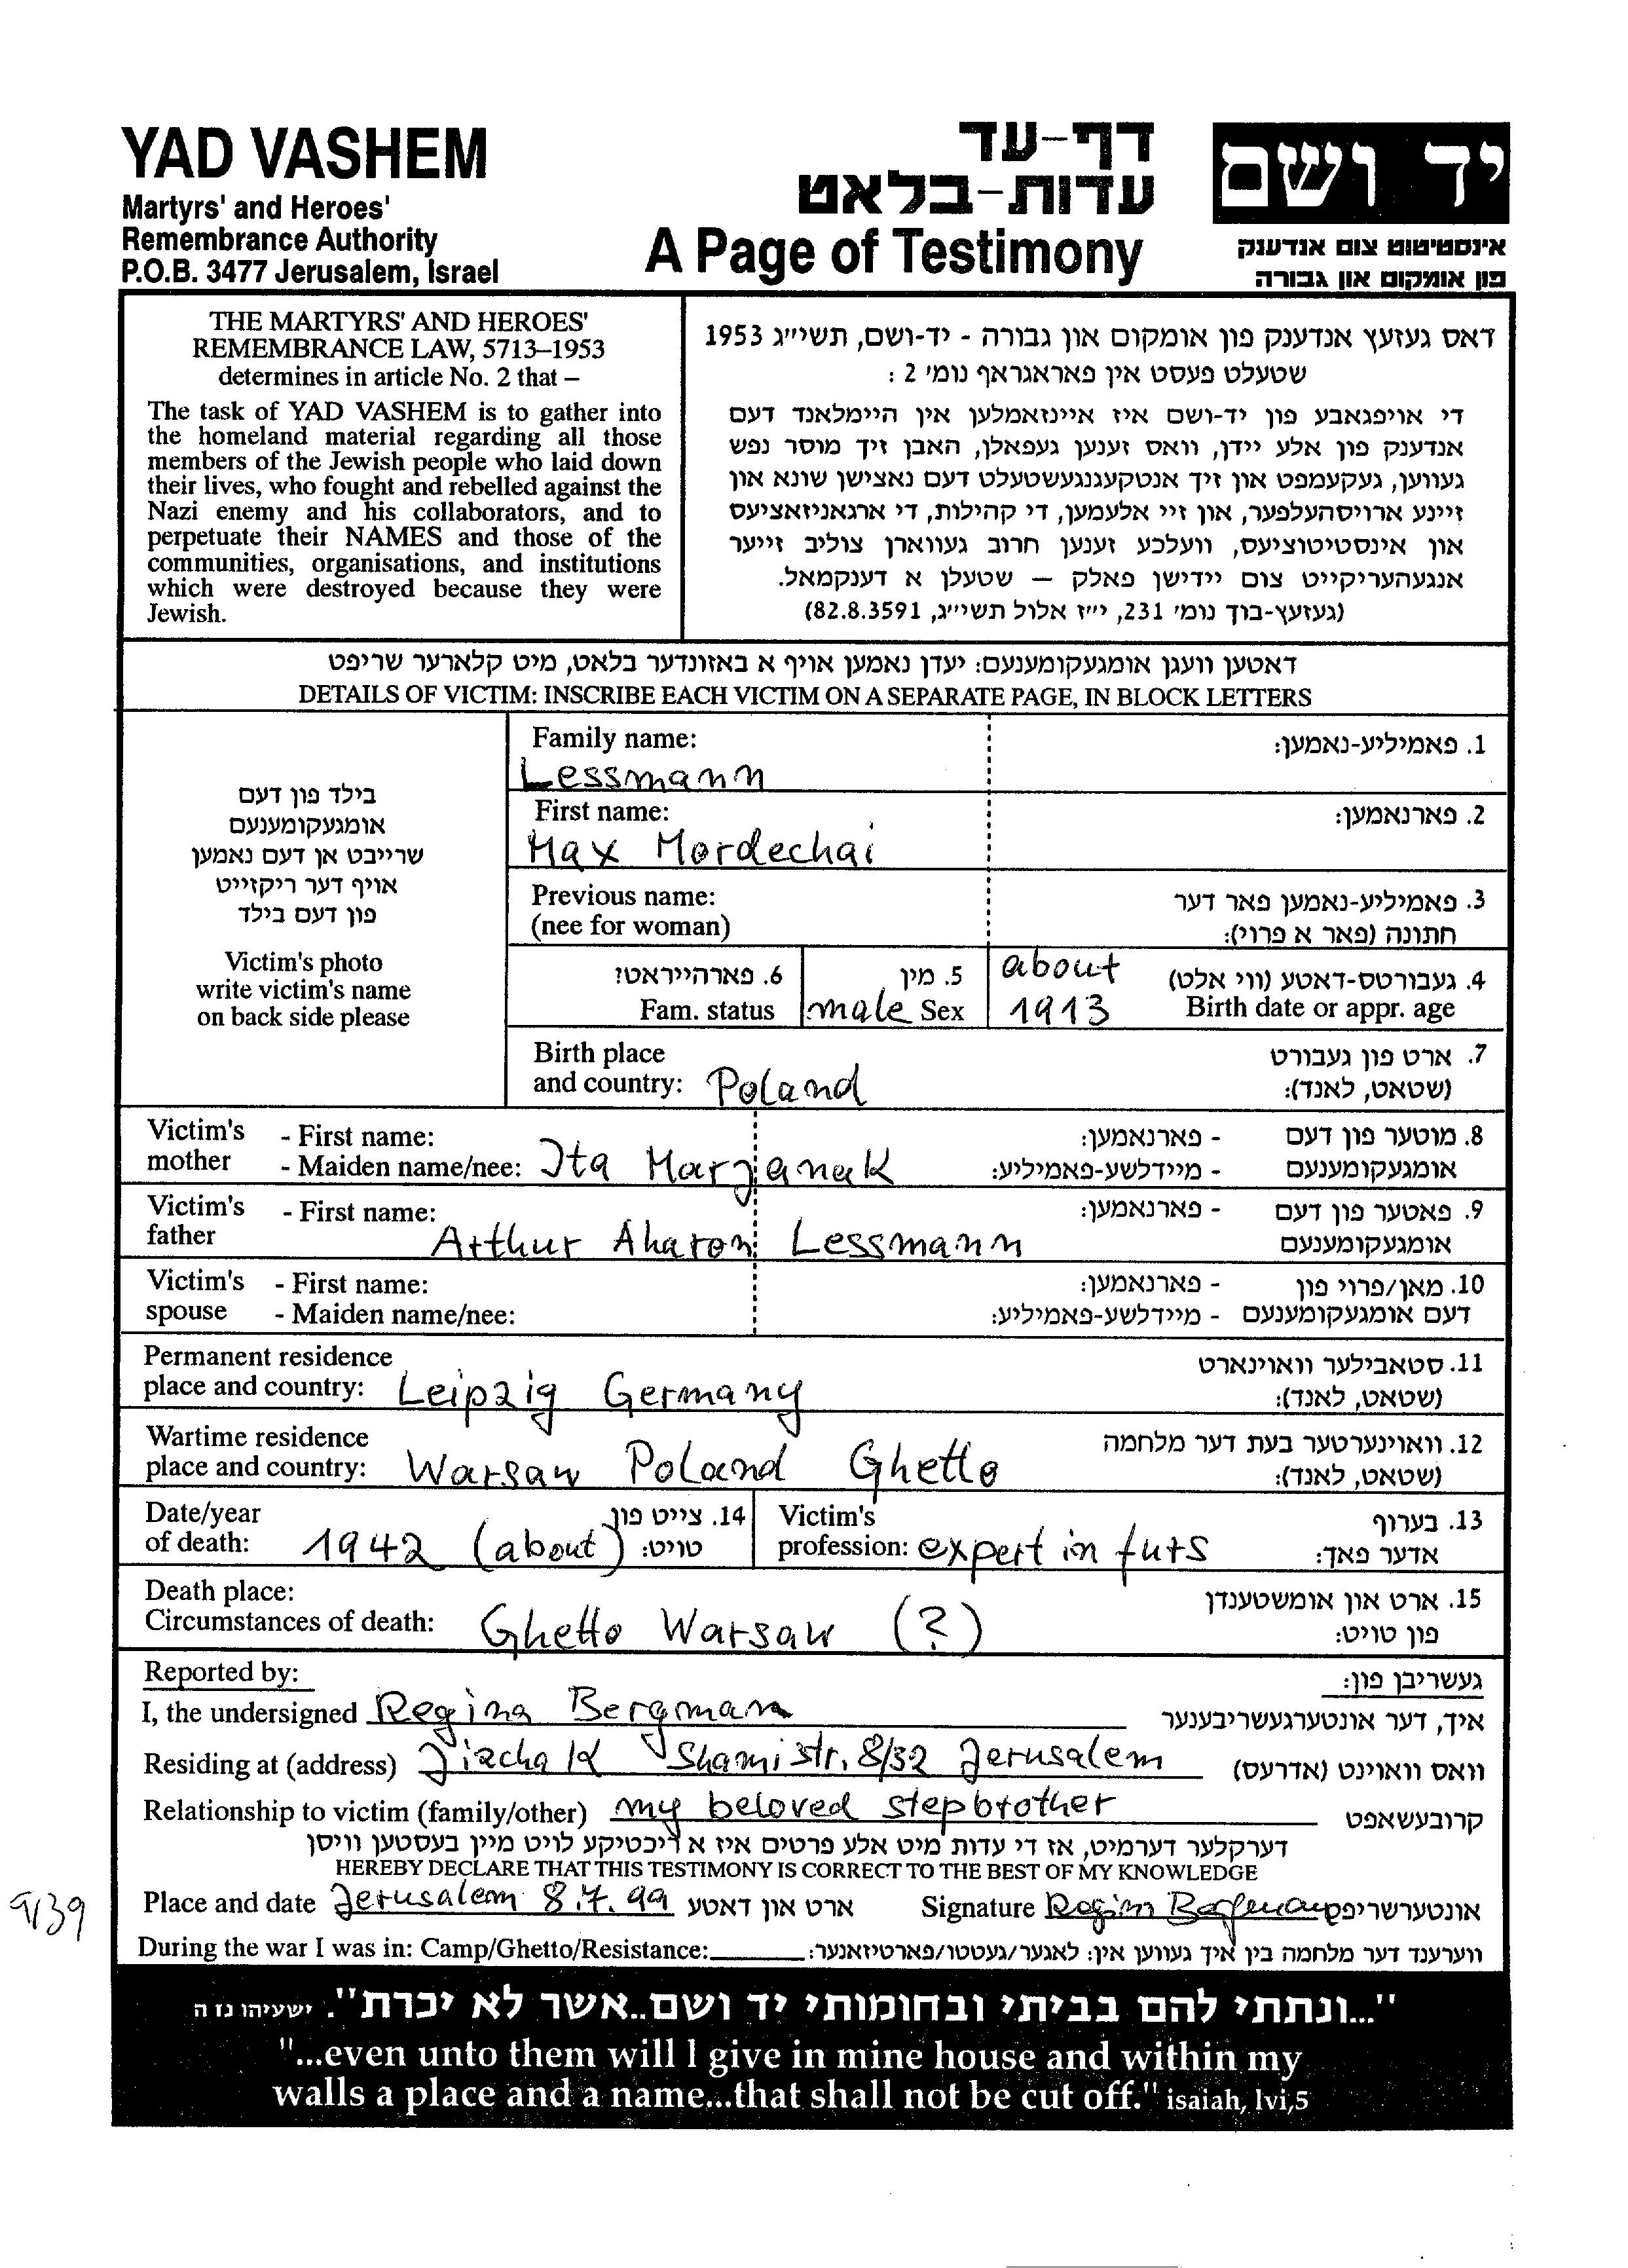 YAD VASHEM
Martyrs' and Heroes'
Remembrance Authority
P.O.B. 3477 Jerusalem, Israel
דף-עד
עדות-בלאט
A Page of Testimony
יד ושם
אינסטיטוט צום אנדענק
פון אומקום און גבורה
THE MARTYRS' AND HEROES'
REMEMBRANCE LAW, 5713–1953
determines in article No. 2 that –
The task of YAD VASHEM is to gather into
the homeland material regarding all those
members of the Jewish people who laid down
their lives, who fought and rebelled against the
Nazi enemy and his collaborators, and to
perpetuate their NAMES and those of the
communities, organisations, and institutions
which were destroyed because they were
Jewish.
דאס געזעץ אנדענק פון אומקום און גבורה - יד-ושם, תשי״ג 1953
שטעלט פעסט אין פאראגראף נומ׳ 2 :
די אויפגאבע פון יד-ושם איז איינזאמלען אין היימלאנד דעם
אנדענק פון אלע יידן, וואס זענען געפאלן, האבן זיך מוסר נפש
געווען, געקעמפט און זיך אנטקעגנגעשטעלט דעם נאצישן שונא און
זיינע ארויסהעלפער, און זיי אלעמען, די קהילות, די ארגאניזאציעס
און אינסטיטוציעס, וועלכע זענען חרוב געווארן צוליב זייער
אנגעהעריקייט צום יידישן פאלק — שטעלן א דענקמאל.
(געזעץ-בוך נומ׳ 231, י״ז אלול תשי״ג, 82.8.3591)
דאטען וועגן אומגעקומענעם: יעדן נאמען אויף א באזונדער בלאט, מיט קלארער שריפט
DETAILS OF VICTIM: INSCRIBE EACH VICTIM ON A SEPARATE PAGE, IN BLOCK LETTERS
בילד פון דעם
אומגעקומענעם
שרייבט אן דעם נאמען
אויף דער ריקזייט
פון דעם בילד
Victim's photo
write victim's name
on back side please
Family name: 1. פאמיליע-נאמען:
Lessmann
First name: 2. פארנאמען:
Max Mordechai
Previous name: 3. פאמיליע-נאמען פאר דער
(nee for woman) חתונה (פאר א פרוי):
6. פארהייראט? 5. מין about 4. געבורטס-דאטע (ווי אלט)
Fam. status male Sex 1913 Birth date or appr. age
Birth place 7. ארט פון געבורט
and country: Poland (שטאט, לאנד):
Victim's - First name: - פארנאמען: 8. מוטער פון דעם
mother - Maiden name/nee: Ita Marjanak - מיידלשע-פאמיליע: אומגעקומענעם
Victim's - First name: - פארנאמען: 9. פאטער פון דעם
father Arthur Aharon Lessmann אומגעקומענעם
Victim's - First name: - פארנאמען: 10. מאן/פרוי פון
spouse - Maiden name/nee: - מיידלשע-פאמיליע: דעם אומגעקומענעם
Permanent residence 11. סטאבילער וואוינארט
place and country: Leipzig Germany (שטאט, לאנד):
Wartime residence 12. וואוינערטער בעת דער מלחמה
place and country: Warsaw Poland Ghetto (שטאט, לאנד):
Date/year 14. צייט פון Victim's 13. בערוף
of death: 1942 (about) טויט: profession: expert in furs אדער פאך:
Death place: 15. ארט און אומשטענדן
Circumstances of death: Ghetto Warsaw (?) פון טויט:
Reported by: געשריבן פון:
I, the undersigned Regina Bergman איך, דער אונטערגעשריבענער
Residing at (address) Jizchak Shamistr. 8/32 Jerusalem וואס וואוינט (אדרעס)
Relationship to victim (family/other) my beloved stepbrother קרובעשאפט
דערקלער דערמיט, אז די עדות מיט אלע פרטים איז א ריכטיקע לויט מיין בעסטען וויסן
HEREBY DECLARE THAT THIS TESTIMONY IS CORRECT TO THE BEST OF MY KNOWLEDGE
Place and date Jerusalem 8.7.99 ארט און דאטע Signature Regina Bergman אונטערשריפט
9/39
During the war I was in: Camp/Ghetto/Resistance: ווערענד דער מלחמה בין איך געווען אין: לאגער/געטטו/פארטיזאנער:
"...ונתתי להם בביתי ובחומותי יד ושם..אשר לא יכרת". ישעיהו נז ה
"...even unto them will I give in mine house and within my
walls a place and a name...that shall not be cut off." isaiah, lvi,5